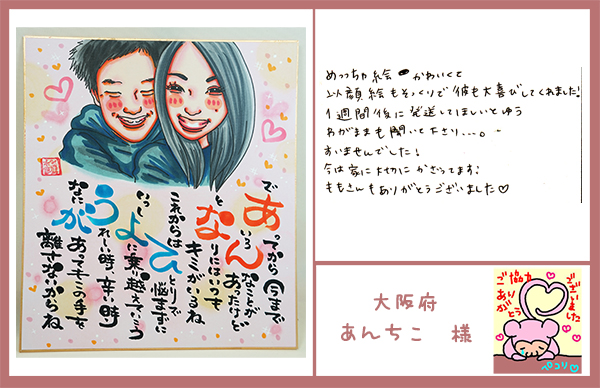 であってから今まで
いろんなことがあったけど
となりにはいつもキミがいるね
これからはひとりで悩まずに
いっしょに乗り越えていこう
うれしい時、辛い時
なにがあってもこの手を
離さないからね
めっちゃ絵かわいくて
以顔絵もそっくりで彼も大喜びしてくれました!
1週間後に発送してほしいとゆう
わがままも聞いて下さり...。
すいませんでした!
今は家に大切にかざってます!
ももさんもありがとうございました♡
大阪府
あんちこ 様
ご協力
ありがとう
ございました
ペコリ♡